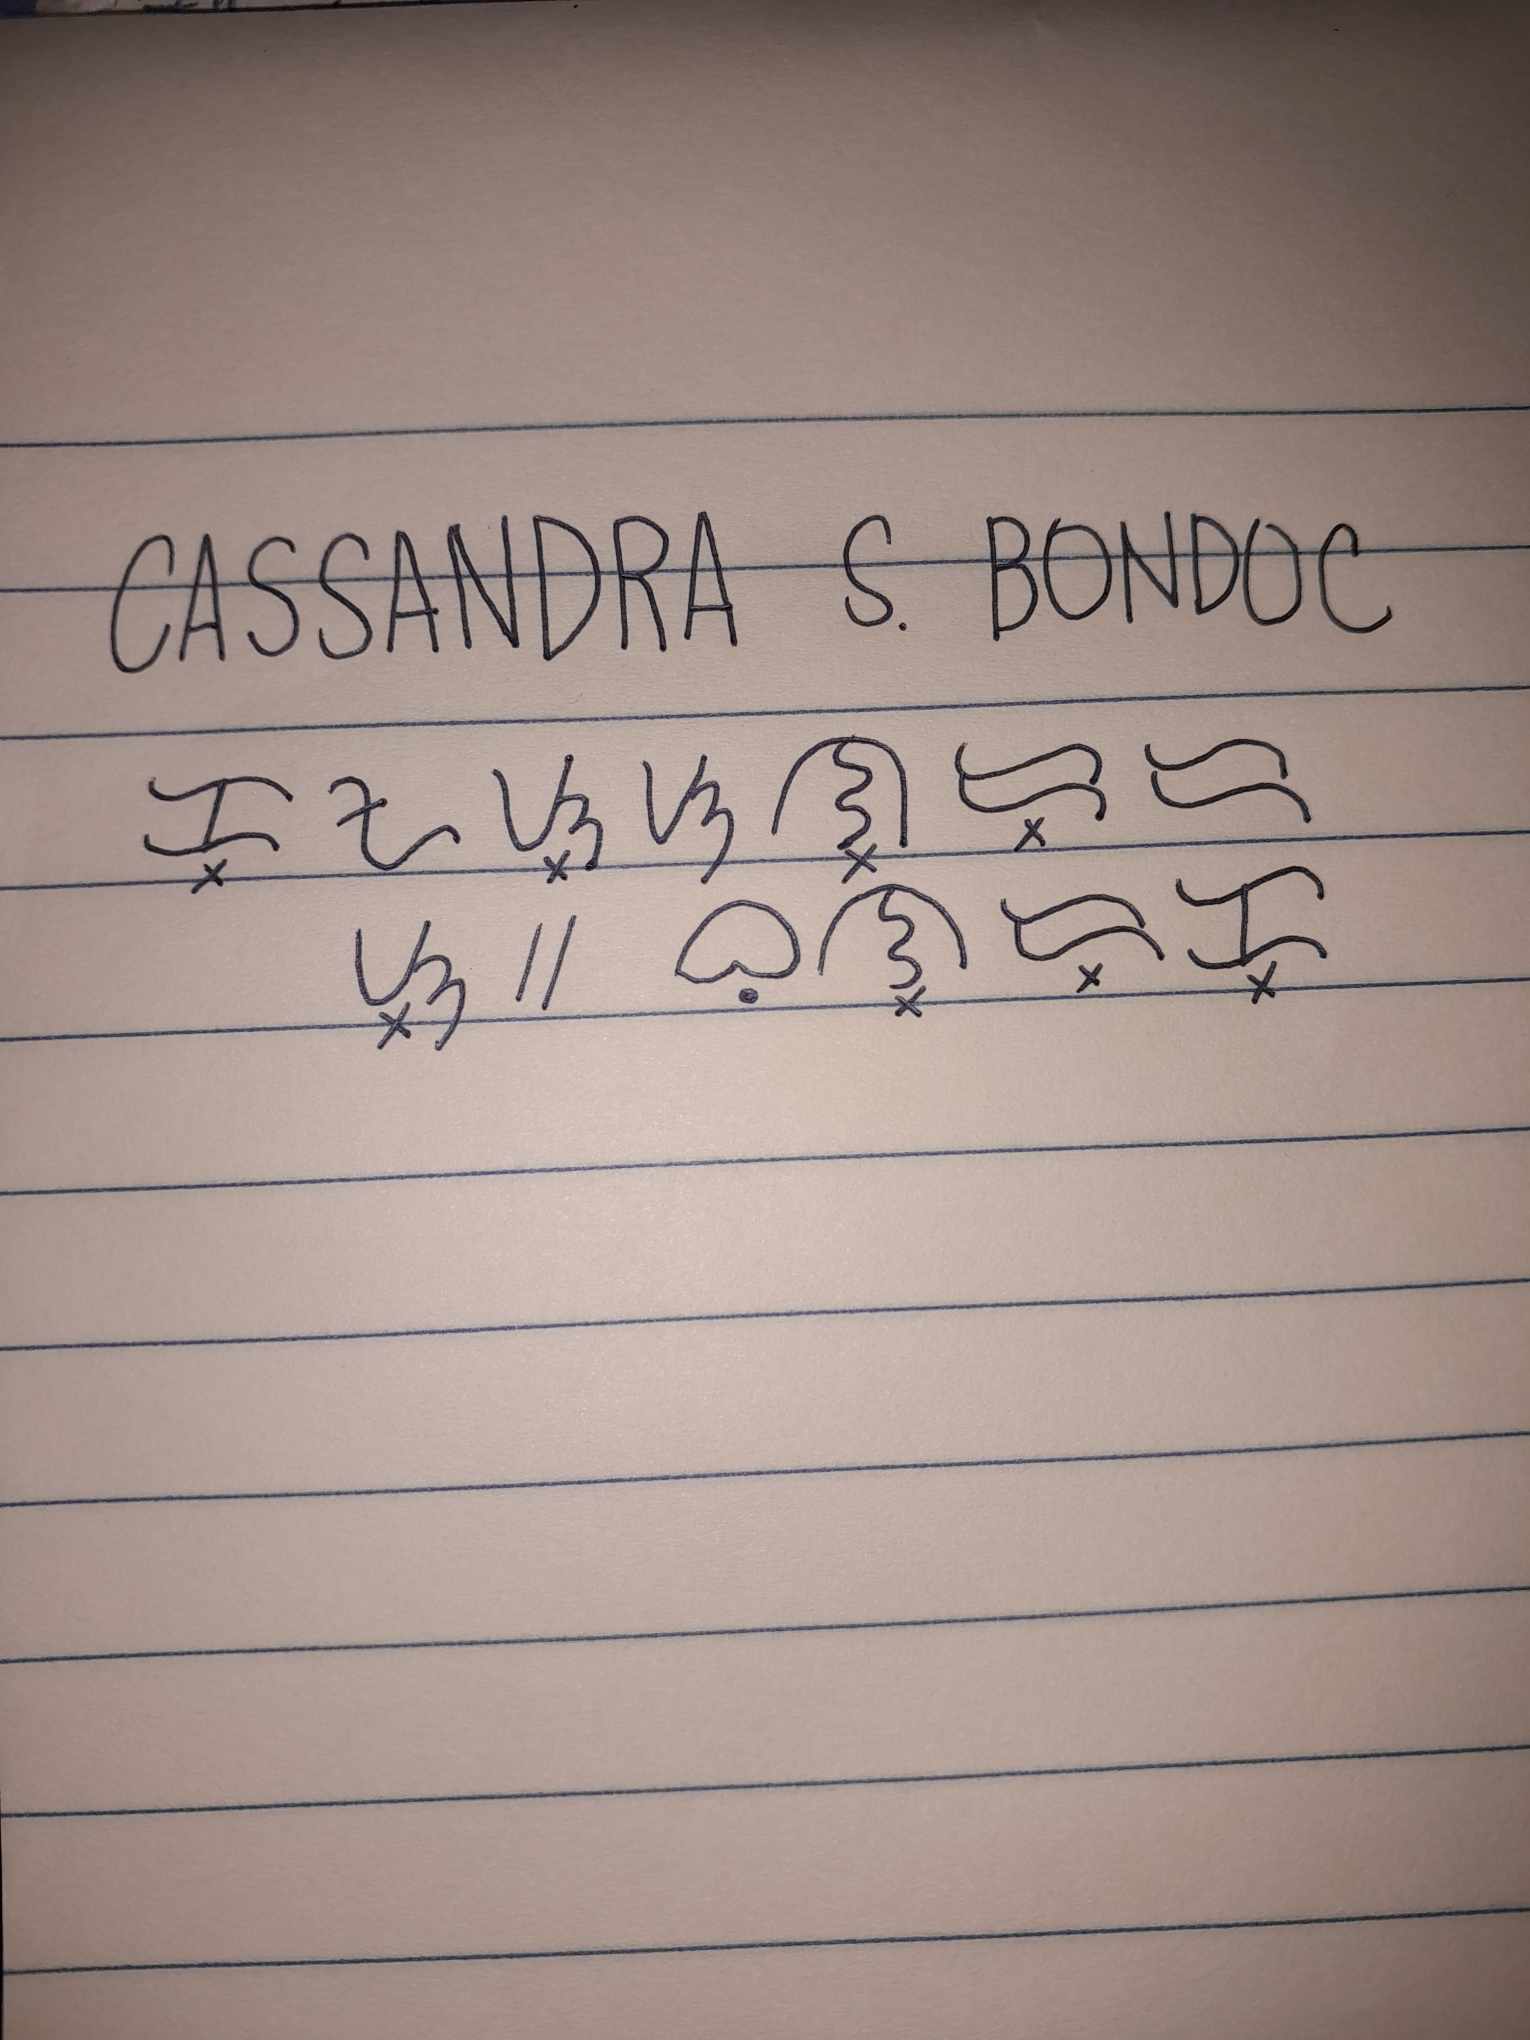 CASSANDRA S. BONDOC
ᜃ᜔ᜀᜐ᜔ᜐᜈ᜔ᜇ᜔ᜇ
ᜐ᜔᜶ ᜊᜓᜈ᜔ᜇ᜔ᜃ᜔